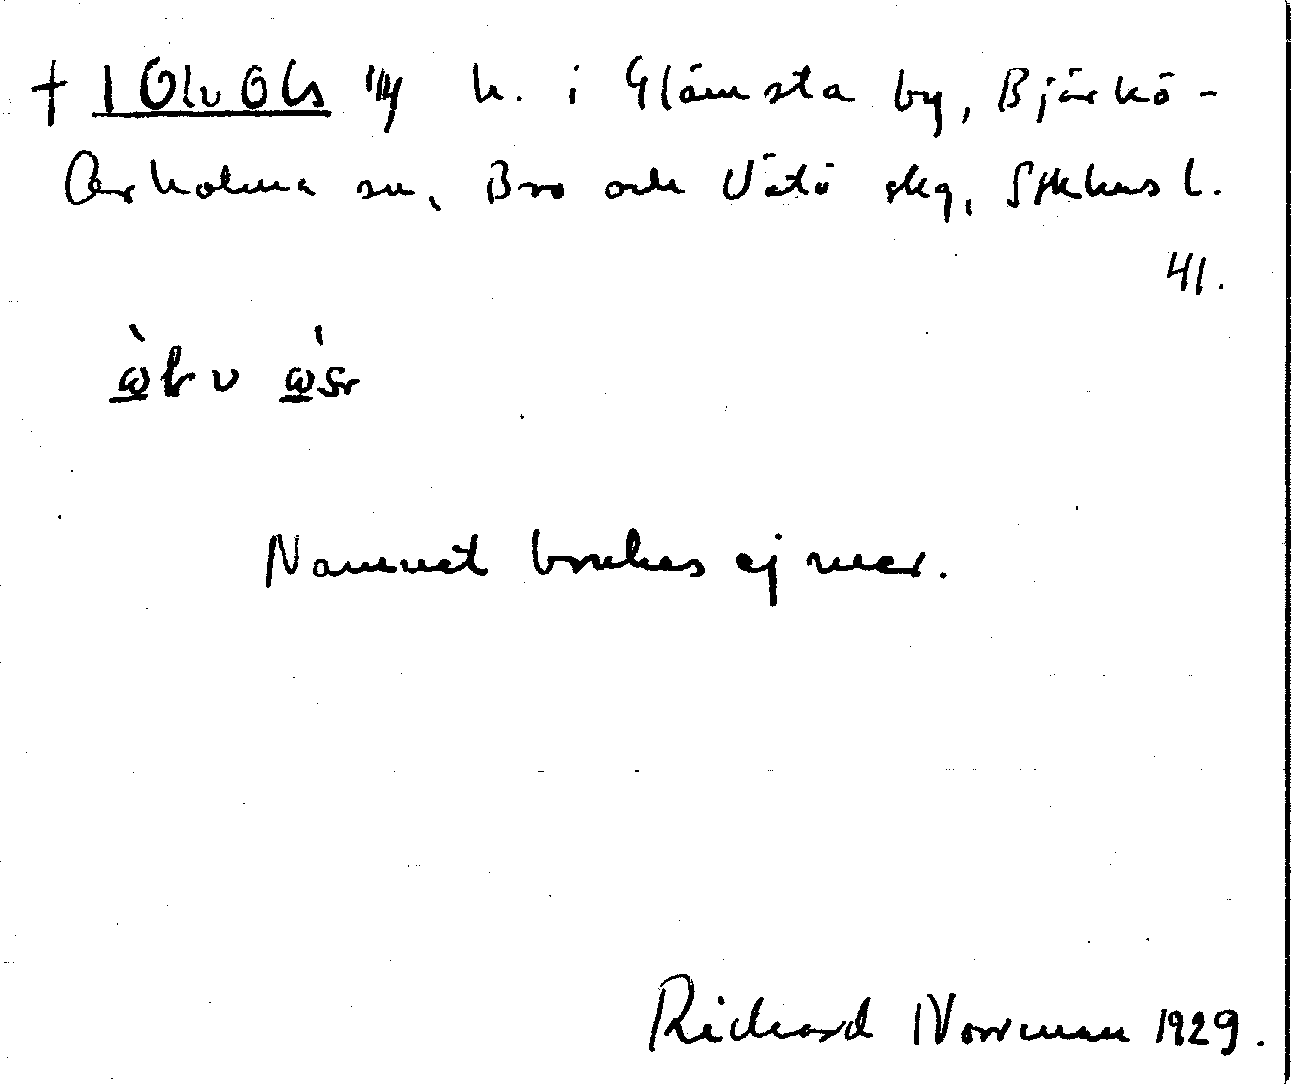 † 1 Olv Ols 1/4 h. i Glämsta by, Björkö-
Arholma sn, Bro och Vätö skg, Sthlms l.
41.
Namnet brukas ej mer.
Richard Norrman 1929.